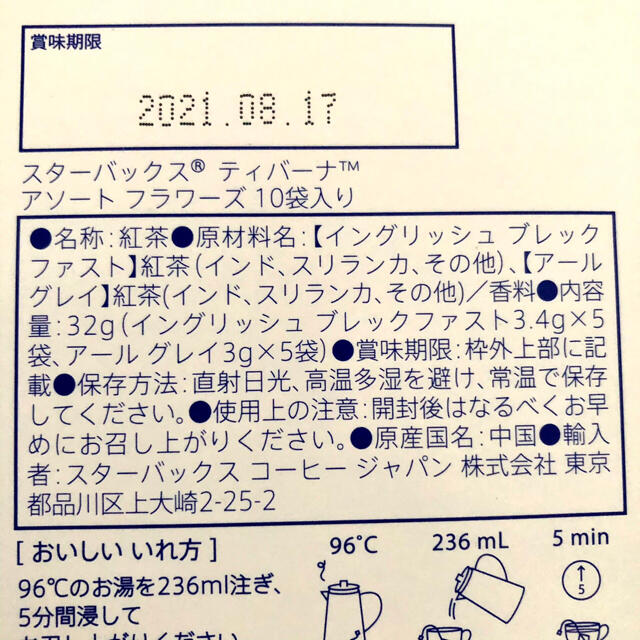 賞味期限
2021.08.17
スターバックス® ティバーナ™
アソート フラワーズ 10袋入り
●名称:紅茶●原材料名:【イングリッシュ ブレック
ファスト】紅茶(インド、スリランカ、その他)、【アール
グレイ】紅茶(インド、スリランカ、その他)/香料●内容
量:32g(イングリッシュ ブレックファスト3.4g×5
袋、アール グレイ3g×5袋)●賞味期限:枠外上部に記
載●保存方法:直射日光、高温多湿を避け、常温で保存
してください。●使用上の注意:開封後はなるべくお早
めにお召し上がりください。●原産国名:中国●輸入
者:スターバックス コーヒー ジャパン 株式会社 東京
都品川区上大崎2-25-2
[ おいしい いれ方 ]
96℃ 236 mL 5 min
5
96℃のお湯を236ml注ぎ、
5分間浸して